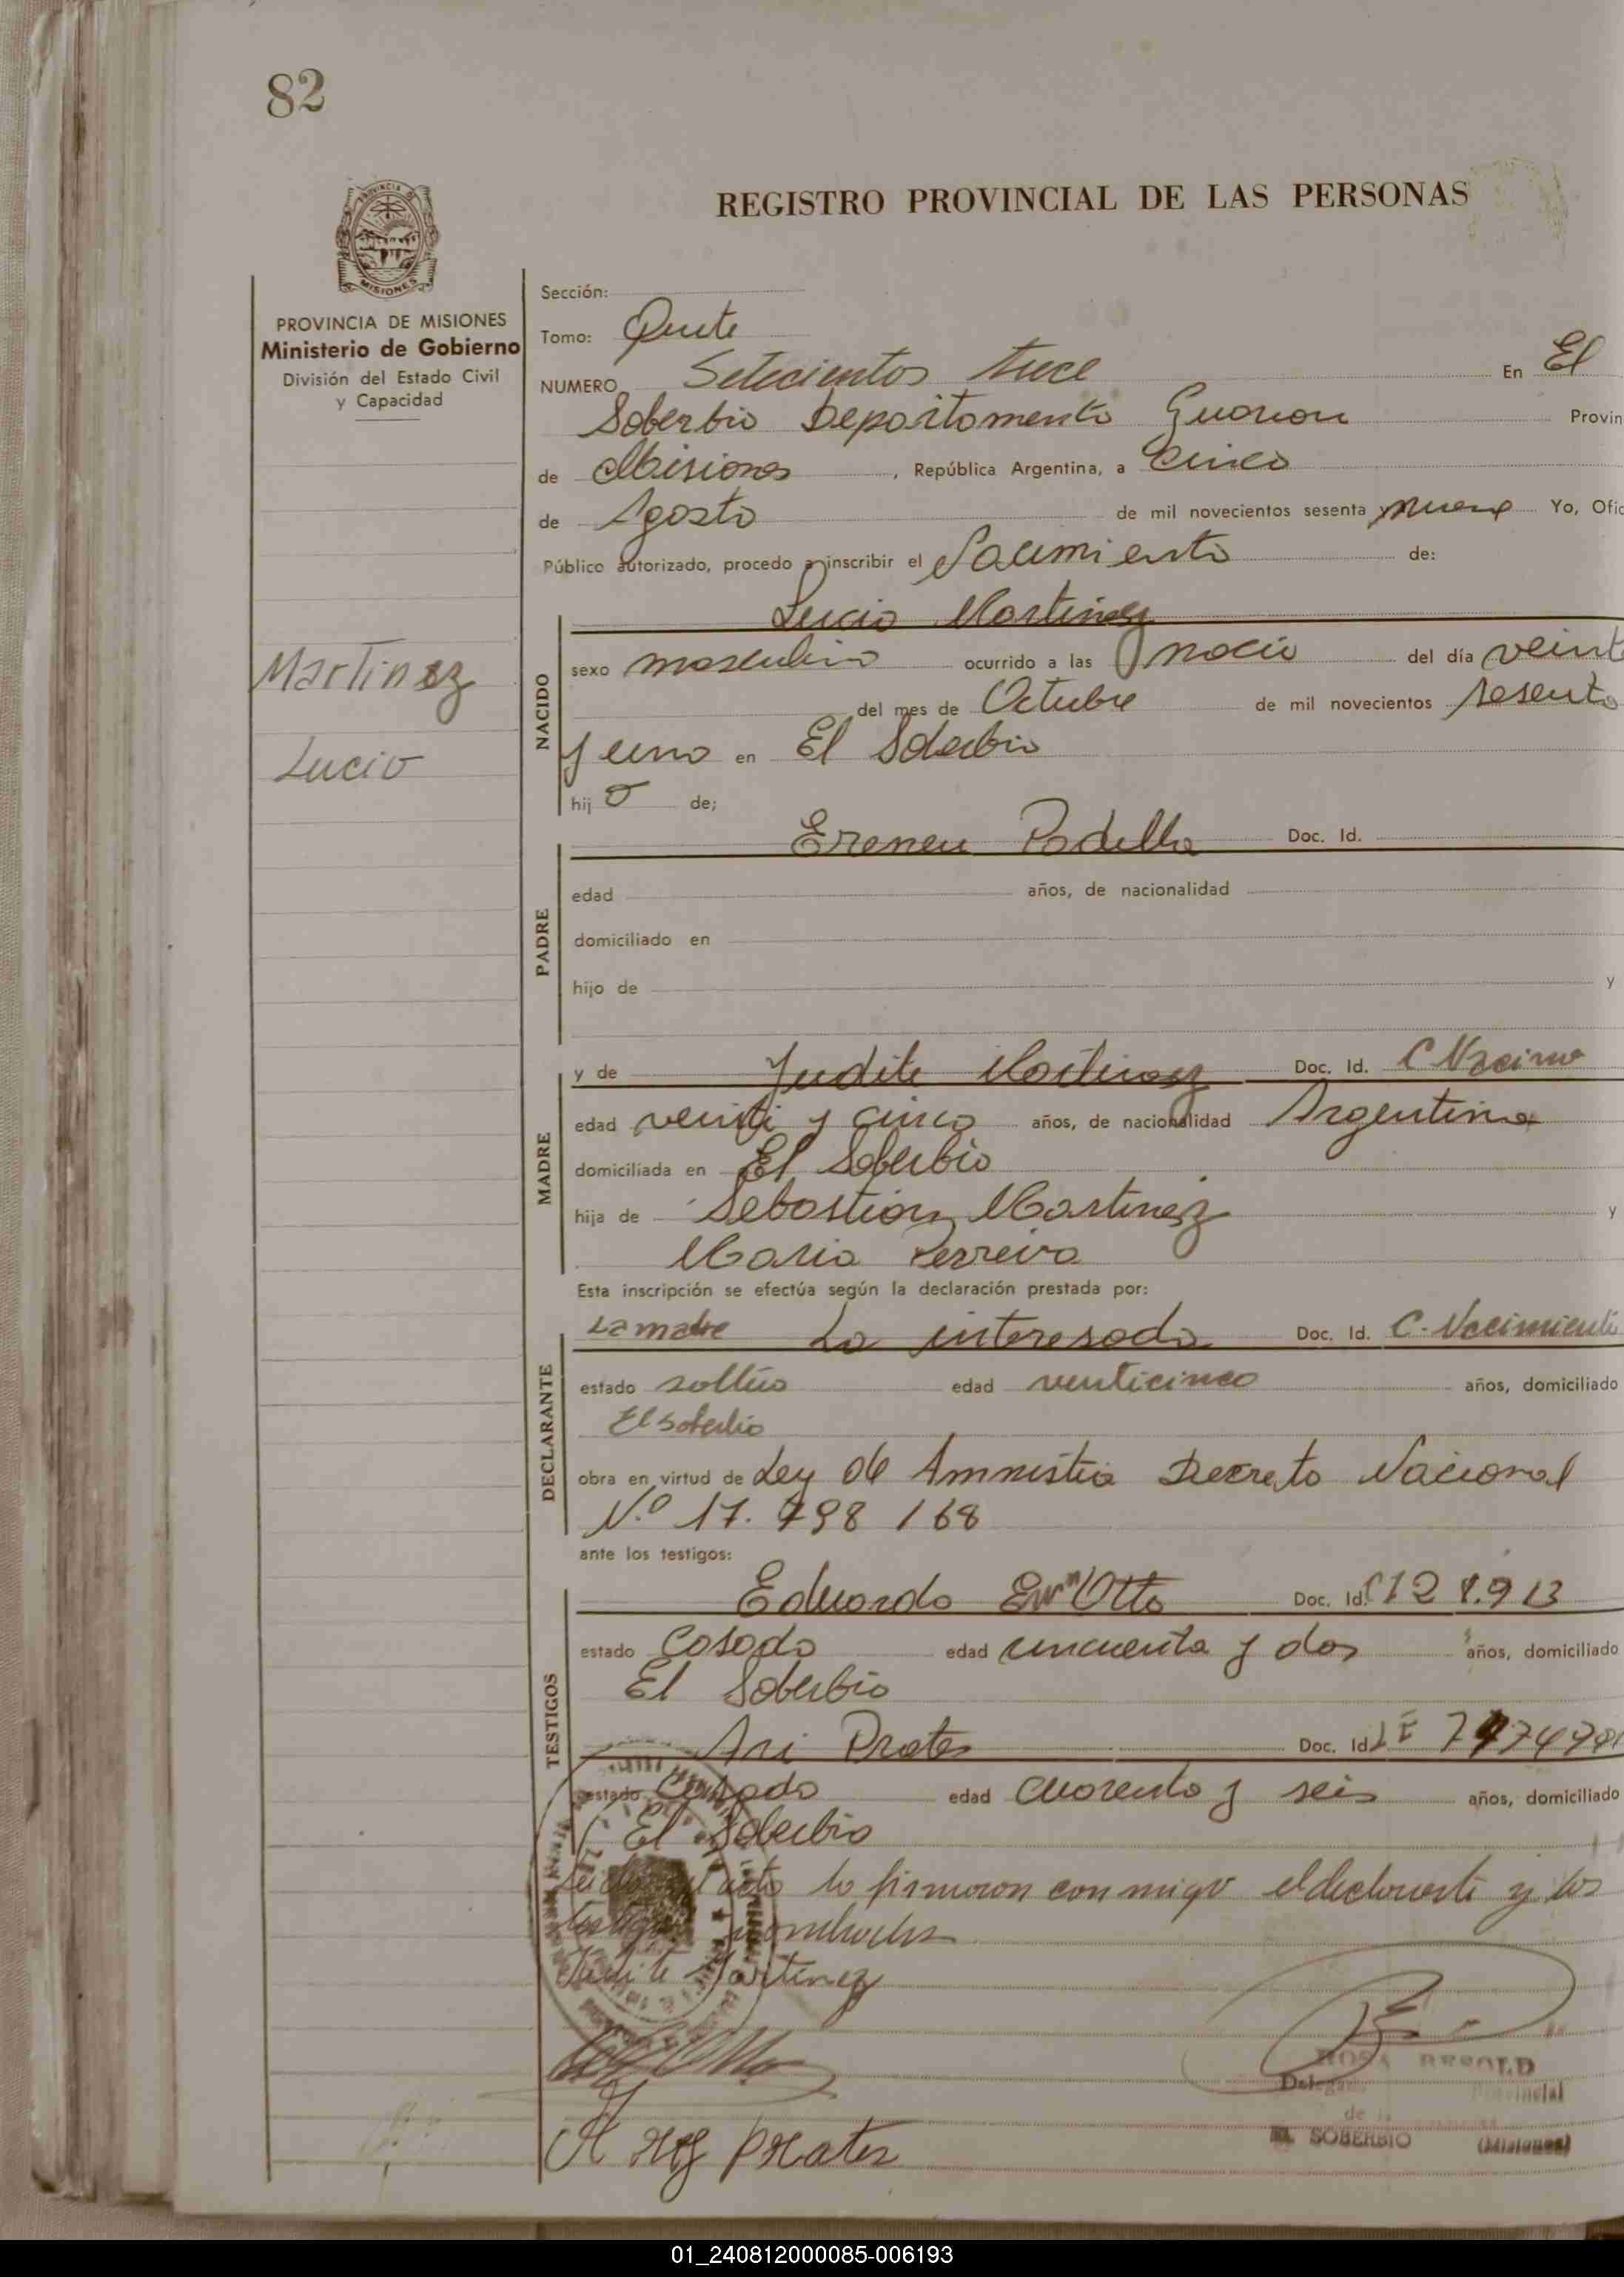 82
REGISTRO PROVINCIAL DE LAS PERSONAS
PROVINCIA DE MISIONES
Ministerio de Gobierno
División del Estado Civil
y Capacidad
Martinez
Lucio
Sección:
Tomo:
NUMERO Setecientos trece En El
Soberbio Departamento Guarani Provin
de Misiones, República Argentina, a Cinco
de Agosto de mil novecientos sesenta y nueve Yo, Ofic
Público autorizado, procedo a inscribir el Nacimiento de:
NACIDO
Lucio Martinez
sexo masculino ocurrido a las nació del día veinte
del mes de Octubre de mil novecientos sesenta
y uno en El Soberbio
hij o de;
PADRE
Ereneu Padilla Doc. Id.
edad años, de nacionalidad
domiciliado en
hijo de y
MADRE
y de Judite Martinez Doc. Id. C Nacim
edad veinti y cinco años, de nacionalidad Argentina
domiciliada en El Soberbio
hija de Sebastian Martinez y
Maria Ferreira
Esta inscripción se efectúa según la declaración prestada por:
DECLARANTE
La madre La interesada Doc. Id. C. Nacimiento
estado soltero edad venticinco años, domiciliado
El Soberbio
obra en virtud de Ley de Amnistia Decreto Nacional
N.º 17.798/68
ante los testigos:
TESTIGOS
Eduardo Otto Doc. Id.
estado Casado edad cincuenta y dos años, domiciliado
El Soberbio
Ari Prates Doc. Id. LE
estado Casado edad cuarenta y seis años, domiciliado
El Soberbio
Leida el acta lo firmaron con migo el declarante y los
testigos nombrados
Judite Martinez
Prates
ROSA BESOLD
Delegado Provincial
de
EL SOBERBIO (Misiones)
01_240812000085-006193